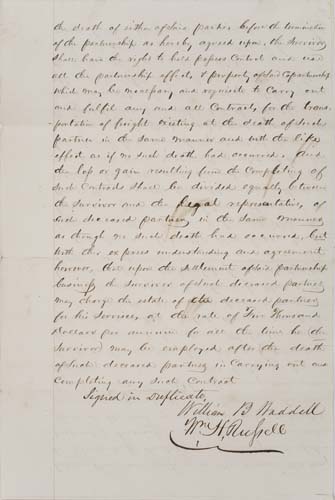 the death of either of said parties before the termination
of the partnership as hereby agreed upon, the Survivor
shall have the right to hold possess Control and use
all the partnership effects & property of said Copartnership
which may be necessary and requisite to Carry out
and fulfil any and all Contracts, for the trans-
portation of freight existing at the death of such
partner in the same manner and with the like
effect as if no such death had occurred, And
the loss or gain resulting from the Completing of
such Contracts shall be divided equally between
the Survivor and the legal representatives of
such deceased partner, in the same manner
as though no such death had occurred, but
with the express understanding and agreement
however, that upon the statement of said partnership
business the survivor of such deceased partner
may charge the estate of the deceased partner
for his Services, at the rate of Thousand
Dollars per annum for all the time he (the
Survivor) may be employed after the death
of such deceased partner in Carrying out and
Completing any such Contract
Signed in Duplicate,
William B Waddell
Wm H. Russell